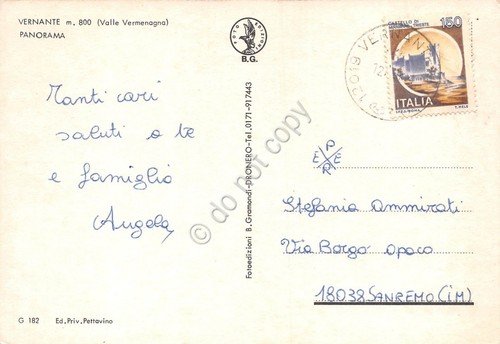 VERNANTE m. 800 (Valle Vermenagna)
PANORAMA
FOTO EDIZIONI
B.G.
12019 VERNAN
CASTELLO DI
150
ITALIA
Tanti cari
saluti a te
e famiglia
Angela
Fotoedizioni B. Gramondi-DRONERO-Tel. 0171-917443
do not copy
P
E E
P
Stefania Ammirati
Via Borgo Opaco
18038 SANREMO (IM)
G 182 Ed. Priv. Pettavino